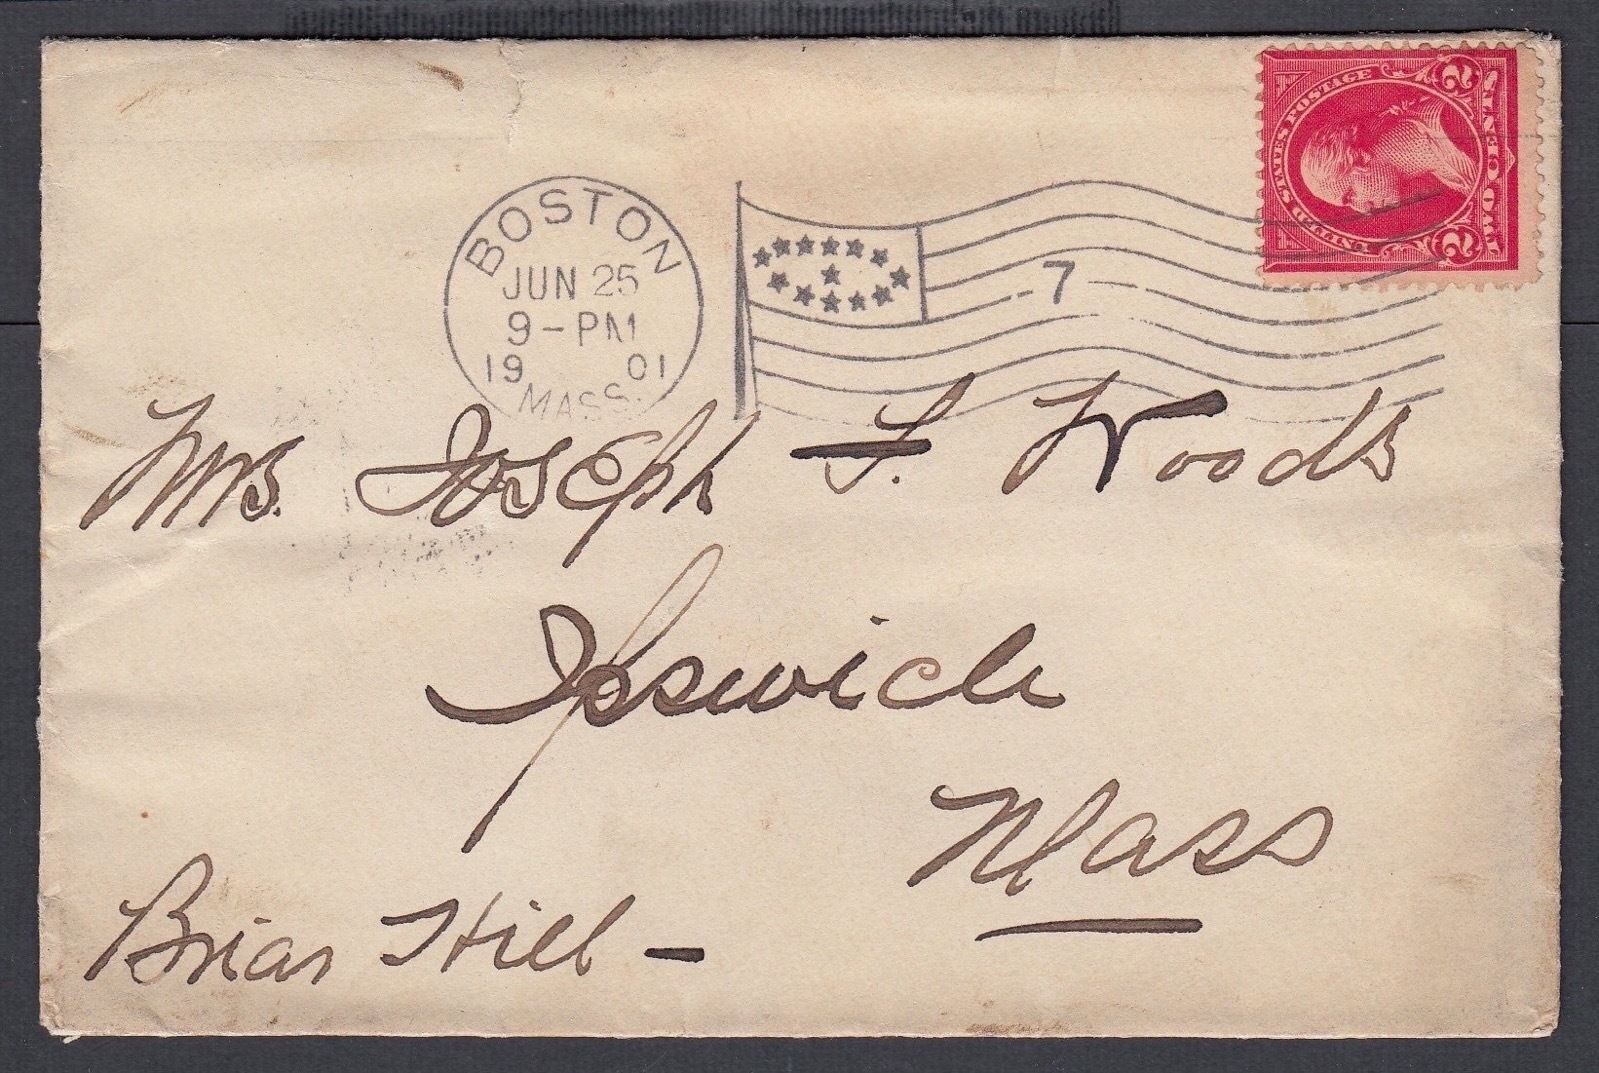 BOSTON
JUN 25
9-PM
19 01
MASS.
7
UNITED STATES POSTAGE
2 2
TWO CENTS
Mrs. Joseph F. Woods
Ipswich
Mass
Briar Hill -